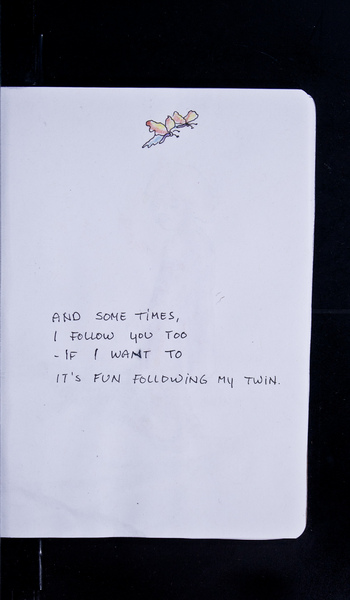 AND SOME TIMES,
I FOLLOW YOU TOO
- IF I WANT TO
IT'S FUN FOLLOWING MY TWIN.